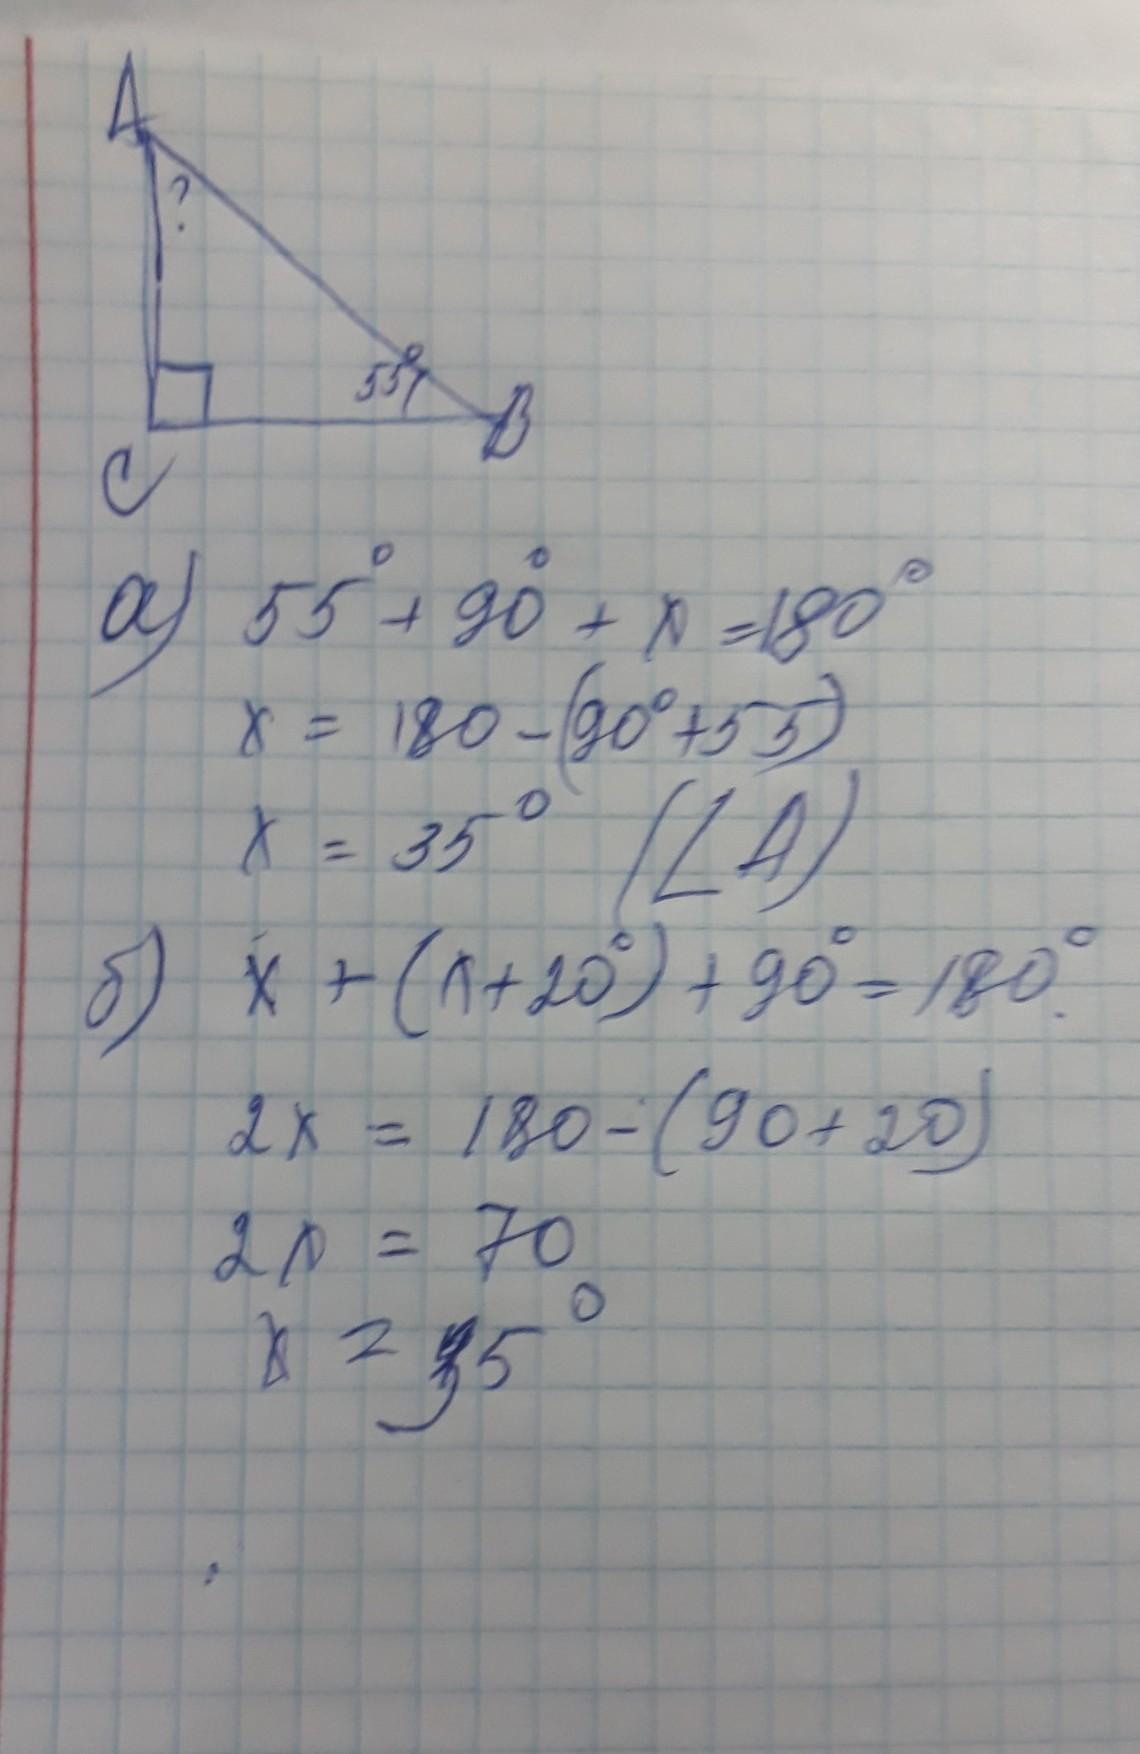 A
?
55°
B
C
а) 55° + 90° + x = 180°
x = 180 - (90° + 55)
x = 35° (∠A)
б) x + (x + 20°) + 90° = 180°.
2x = 180 - (90 + 20)
2x = 70
x = 35°